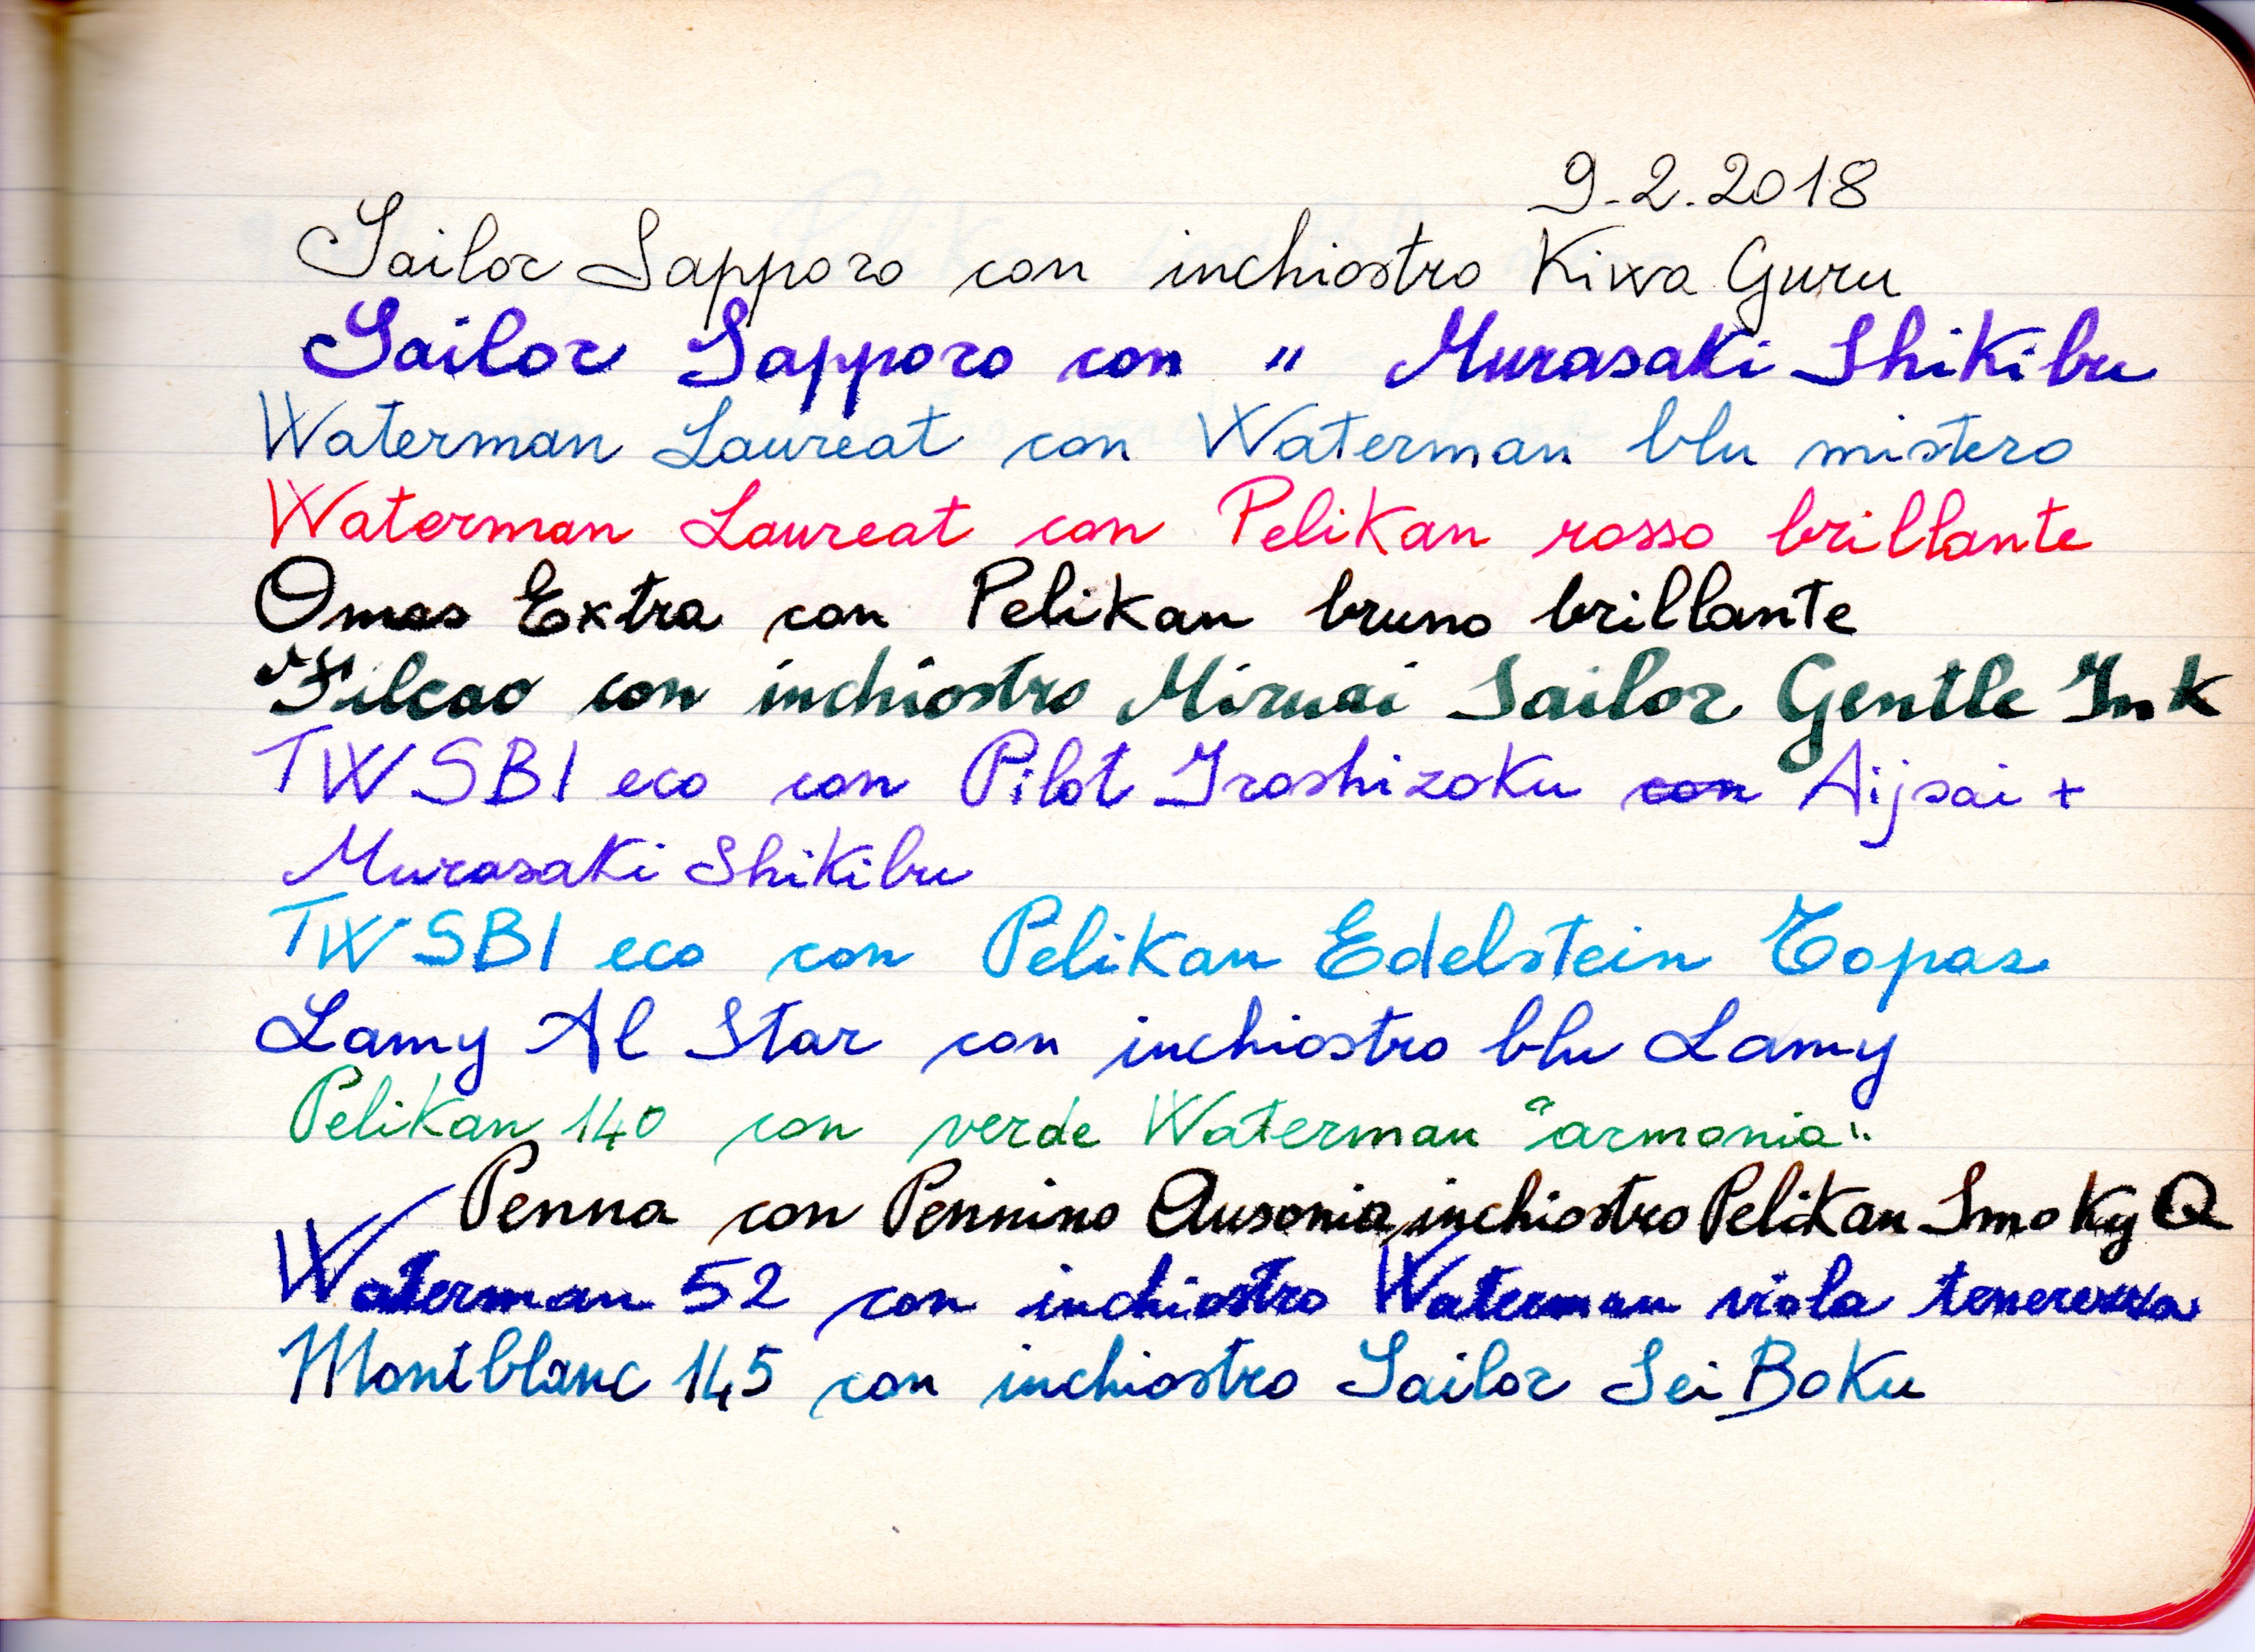 9-2.2018
Sailor Sapporo con inchiostro Kiwa Guru
Sailor Sapporo con " Murasaki Shikibu
Waterman Laureat con Waterman blu mistero
Waterman Laureat con Pelikan rosso brillante
Omas Extra con Pelikan bruno brillante
Filcao con inchiostro Miruai Sailor Gentle Ink
TWSBI eco con Pilot Iroshizoku con Aijsai +
Murasaki Shikibu
TWSBI eco con Pelikan Edelstein Topaz
Lamy Al Star con inchiostro blu Lamy
Pelikan 140 con verde Waterman "armonia"
Penna con Pennino Ausonia, inchiostro Pelikan Smoky Q
Waterman 52 con inchiostro Waterman viola tenerezza
Montblanc 145 con inchiostro Sailor Sei Boku